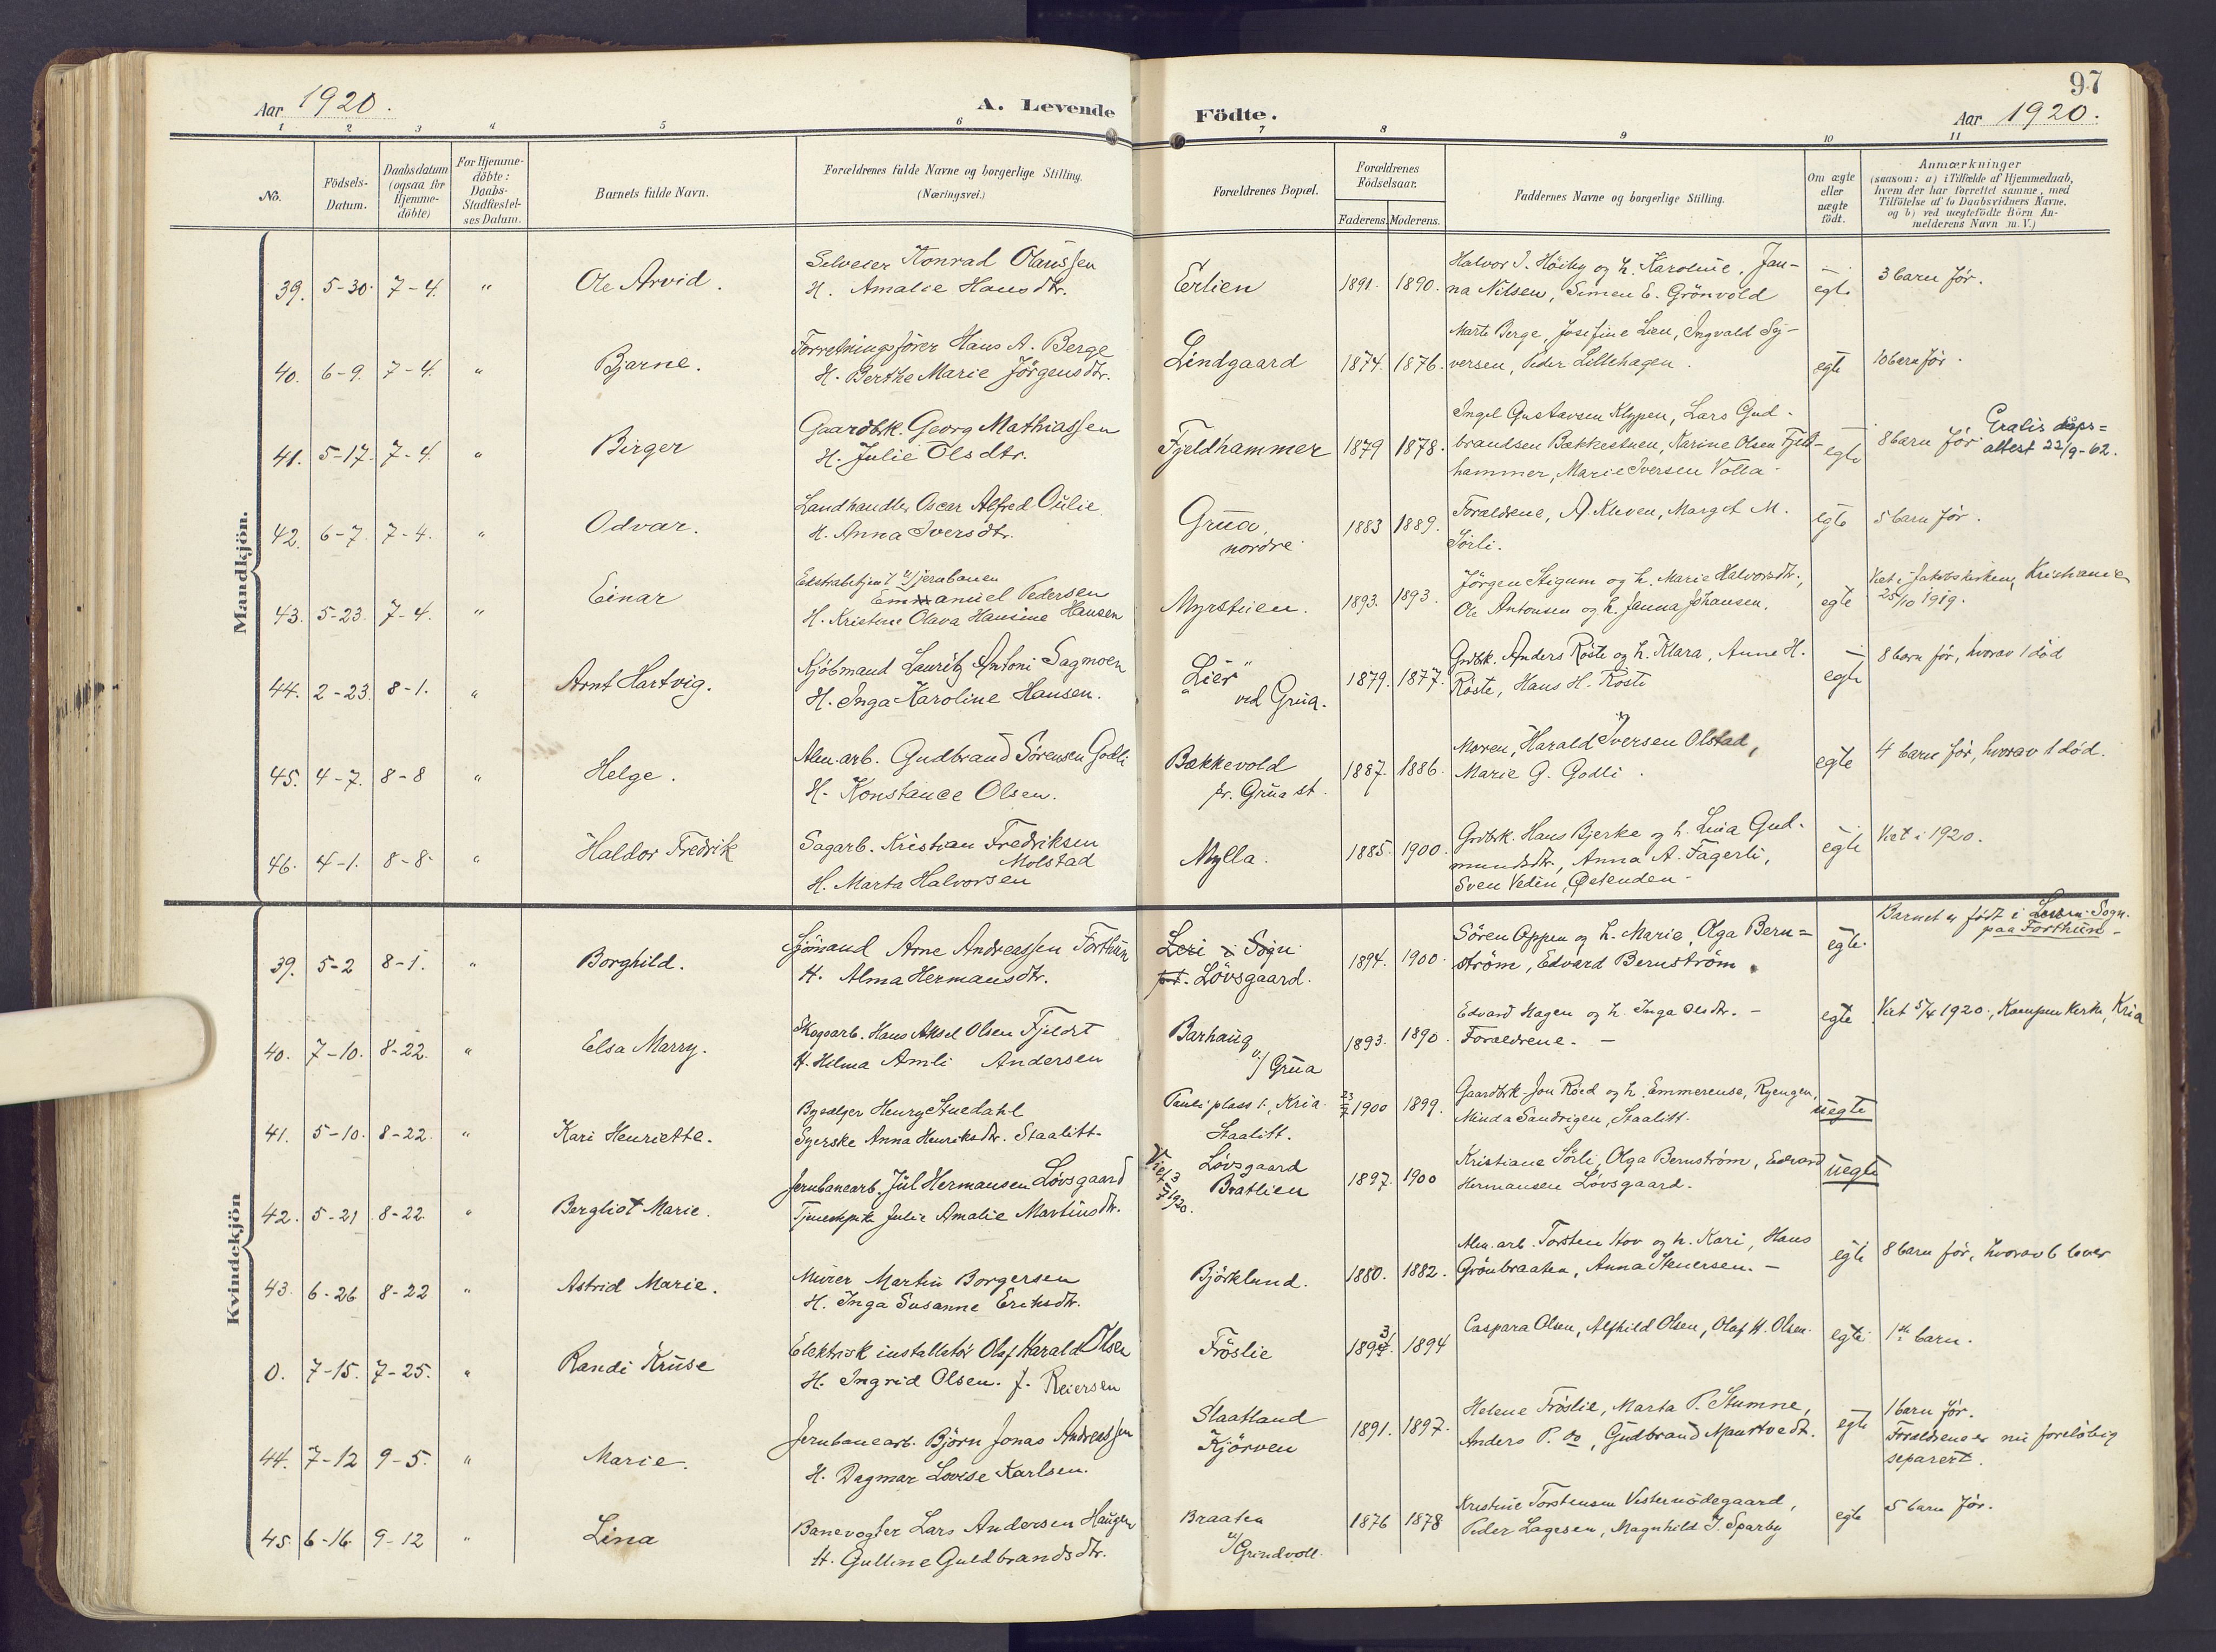 97
Aar 1920.
A. Levende Födte.
Aar 1920.
1 2 3 4 5 6 7 8 9 10 11
No.
Födsels-Datum.
Daabsdatum (ogsaa for Hjemme-döbte)
For Hjemme-döbte: Daabs-Stadfæstel-ses Datum.
Barnets fulde Navn.
Forældrenes fulde Navne og borgerlige Stilling.
(Næringsvei.)
Forældrenes Bopæl.
Forældrenes Födselsaar.
Faderens. Moderens.
Faddernes Navne og borgerlige Stilling.
Om ægte eller uægte födt.
Anmærkninger
(saasom: a) i Tilfælde af Hjemmedaab,
hvem der har forrettet samme, med
Tilföielse af to Daabsvidners Navne.
og b) ved uægtefödte Börn An-
melderens Navn m. V.)
Mandkjön.
39. 5-30. 7-4. " Ole Arvid.
Selveier Konrad Olaussen
H. Amalie Hansdtr.
Erlien 1891. 1890.
Halvor J. Höiby og h. Karoline, Jan-
na Nilsen, Simen E. Grönvold
egte 3 barn før.
40. 6-9. 7-4. " Bjarne.
Forretningsfører Hans A. Berge
H. Berthe Marie Jörgensdtr.
Lindgaard 1874. 1876.
Marte Berge, Josefine Lien, Ingvald Sy-
versen, Peder Lillehagen.
egte 10 barn før.
41. 5-17. 7-4. " Birger
Gaardbk. Georg Mathiassen
H. Julie Olsdtr.
Fjeldhammer 1879 1878.
Ingel Gustavsen Klypen, Lars Gud-
brandsen Bækkestuen, Karine Olsen Fjeld-
hammer, Marie Iversen Volla.
egte 8 barn før
Gratis dåps=
attest 22/9-62.
42. 6-7. 7-4. " Odvar.
Landhandler Oscar Alfred Oulie
H. Anna Iversdtr.
Grua, nordre 1883 1889.
Forældrene, A. Kleven, Margot M.
Sörli.
egte 5 barn før.
43. 5-23. 7-4. " Einar
Ekstrabetjent v/ jernbanen
Emmanuel Pedersen
H. Kristine Olava Hansine Hansen
Myrstuen. 1893. 1893.
Jörgen Stigum og h. Marie Halvorsdtr.,
Ole Antonsen og h. Janna Johansen.
egte
Viet i Jakobskirken, Kristiania
25/10 1919.
44. 2-23. 8-1. " Arnt Hartvig.
Kjöbmand Lauritz Antoni Sagmoen
H. Inga Karoline Hansen.
"Lier" ved Grua. 1879. 1877.
Grdbk. Anders Röste og h. Klara, Anne H.
Röste, Hans H. Röste
egte 8 barn før, hvorav 1 död
45. 4-7. 8-8 " Helge.
Alm. arb. Gudbrand Sörensen Godli
H. Konstance Olsen.
Bækkevold
pr. Grua st. 1887. 1886.
Moren, Harald Iversen Olstad,
Marie G. Godli.
egte 4 barn før, hvorav 1 död.
46. 4-1. 8-8. " Haldor Fredrik
Sagarb. Kristian Fredriksen
Molstad
H. Marta Halvorsen
Mylla. 1885. 1900.
Grdbk. Hans Bjerke og h. Lina Gud-
mundsdtr., Anna A. Fagerli,
Sven Vedin, Østenden.
egte Viet i 1920.
Kvindekjön
39. 5-2 8-1. " Borghild.
Sjömand Arne Andreassen Forthun
H. Alma Hermansdtr.
i Sogn
Lövsgaard. 1894. 1900.
Sören Oppen og h. Marie, Olga Bern=
ström, Edvard Bernström.
egte.
Barnet er födt i Sogn.
paa Forthun
40. 7-10. 8-22. " Elsa Marry.
Skogsarb. Hans Aksel Olsen Fjeldst
H. Hilma Amli Andersen
Barhaug
v/ Grua 1893. 1890.
Edvard Hagen og h. Inga Olsdtr.
Forældrene.
egte Viet 5/4 1920, Kampen Kirke, Kria
41. 5-10. 8-22. " Kari Henriette.
Henry Stuedahl
Syerske Anna Henriksdtr. Staalitt.
Pauli plass 1., Kria.
Staalitt. 1900 1899.
Gaardbk. Jon Röed og h. Emmerense, Ryengen,
Minda Sandvigen, Staalitt.
uegte
42. 5-21 8-22. " Bergliot Marie.
Jernbanearb. Jul Hermansen Lövsgaard
Tjenestepike Julie Amalie Martinsdtr.
Viet 3/7 1920.
Lövsgaard
Bratlien 1897. 1900
Kristiane Sörli, Olga Bernström, Edvard
Hermansen Lövsgaard.
uegte
43. 6-26 8-22 " Astrid Marie.
Murer Martin Borgersen
H. Inga Susanne Eriksdtr.
Björklund. 1880. 1882.
Alm. arb. Torsten Hov og h. Kari, Hans
Grönbraaten, Anna Stenersen.
egte 8 barn før, hvorav 6 lever
0. 7-15. 7-25. " Randi Kruse
Elektrisk installatör Olaf Harald Olsen
H. Ingrid Olsen. f. Reiersen
Fröslie 1893. 1894
Caspara Olsen, Alfhild Olsen, Olaf H. Olsen.
egte 1ste barn.
44. 7-12 9-5. " Marie.
Jernbanearb. Björn Jonas Andreassen
H. Dagmar Lovise Karlsen.
Slaatland
Kjörven 1891. 1897.
Helene Fröslie, Marta P. Stumne,
Anders P. do, Gudbrand
egte 1 barn før.
Forældrene er nu foreløbig
separert.
45. 6-16. 9-12 " Lina
Banevogter Lars Andersen Haugen
H. Gulline Guldbrandsdtr.
Braaten
v/ Grindvoll. 1876 1878
Kristine Torstensen Vesternödegaard,
Peder Lagesen, Magnhild J. Sparby
egte 5 barn før.